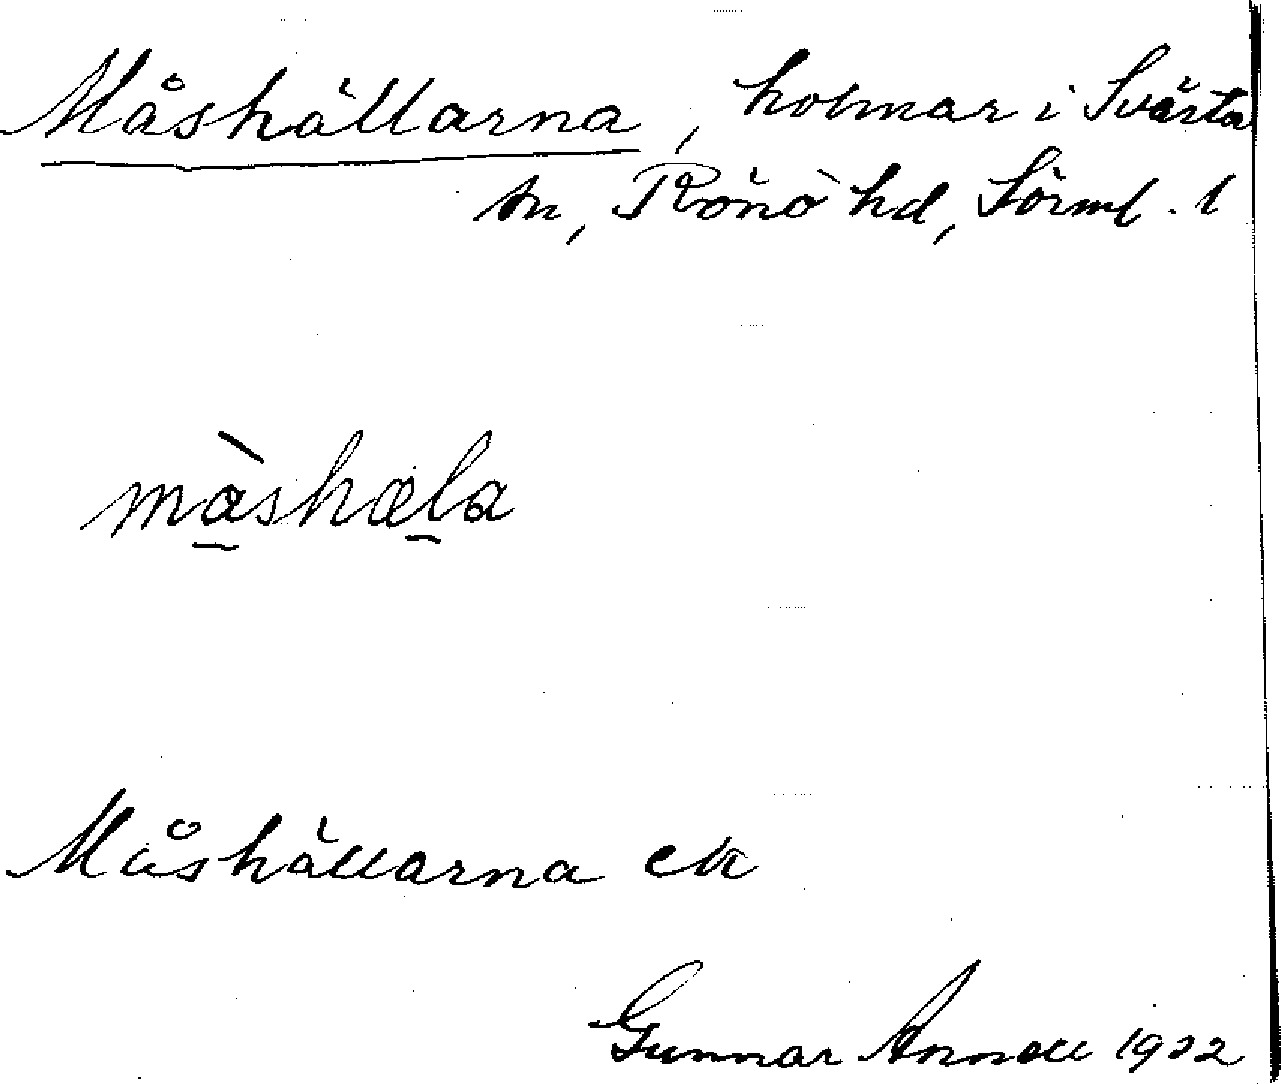 Måshällarna, holmar i Svärta
sn, Rönö hd, Sörml. l
måshæla
Måshällarna ek
Gunnar Annell 1932